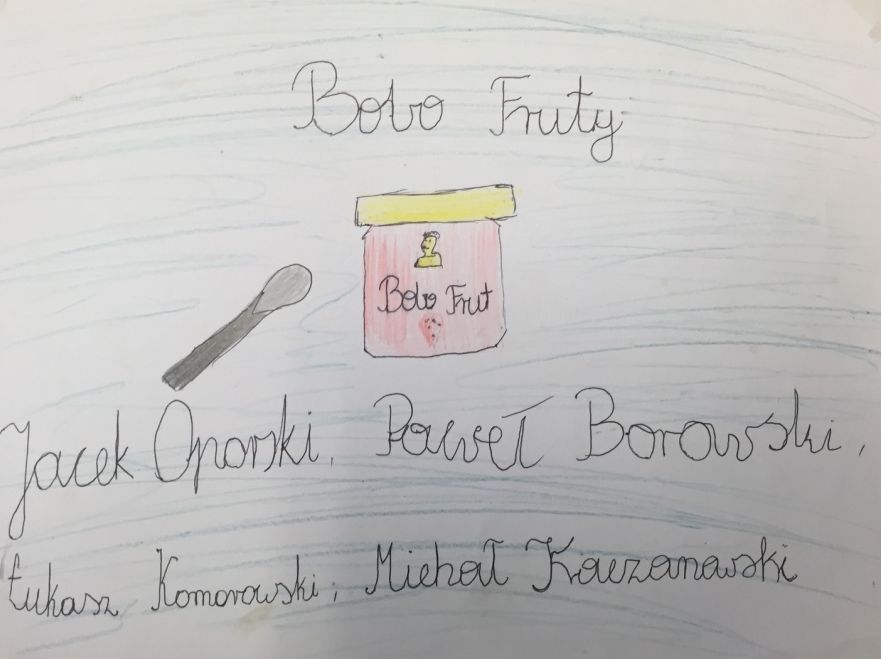 Bobo Fruty
Bobo Frut
Jacek Oporski, Paweł Borowski,
Łukasz Komorowski, Michał Kaczanowski